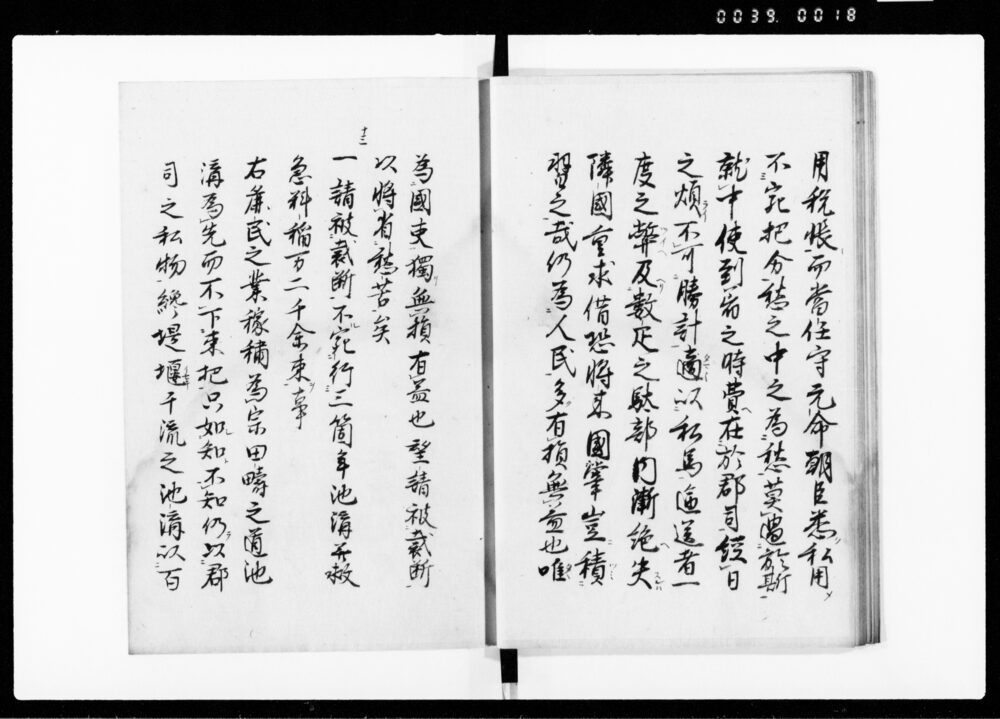 0039.0018
用税帳而當任守元命朝臣悉私用
不宛把分愁之中之為愁莫過於斯
就中使到着之時費在於郡司経日
之煩不可勝計適以私馬逓送者一
度之弊及数疋之駄部内漸絶失
隣國重求借恐将来國掌豈積
習之哉仍為人民多有損無益也唯
為國吏獨無損有益也望請被裁断
以将省愁苦矣
十二
一 請被裁断不宛行三箇年池溝并救
急料稲万二千余束事
右庶民之業稼穡為宗田疇之道池
溝為先而不下束把只如知不知仍以郡
司之私物纔堤堰千流之池溝以百